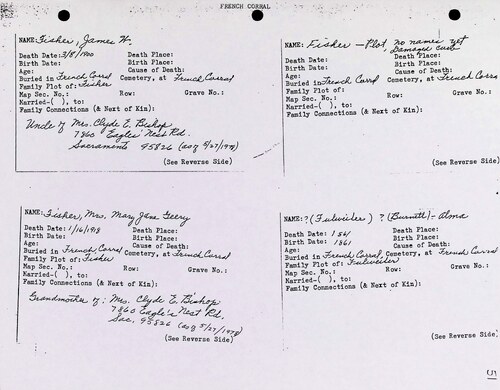 FRENCH CORRAL
NAME: Fisher, James W.
Death Date: 3/8/1900 Death Place:
Birth Date: Birth Place:
Age: Cause of Death:
Buried in French Corral Cemetery, at French Corral
Family Plot of: Fisher
Map Sec. No.: Row: Grave No.:
Married-( ), to:
Family Connections (& Next of Kin):
Uncle of Mrs. Clyde E. Bishop
7860 Eagles' Nest Rd.
Sacramento 95826 (as of 5/27/1978)
(See Reverse Side)
NAME: Fisher - Plot, no names yet
Damaged curb
Death Date: Death Place:
Birth Date: Birth Place:
Age: Cause of Death:
Buried in French Corral Cemetery, at French Corra
Family Plot of:
Map Sec. No.: Row: Grave No.:
Married-( ), to:
Family Connections (& Next of Kin):
(See Reverse Side)
NAME: Fisher, Mrs. Mary Jane Geery
Death Date: 1/16/1918 Death Place:
Birth Date: Birth Place:
Age: Cause of Death:
Buried in French Corral Cemetery, at French Corral
Family Plot of: Fisher
Map Sec. No.: Row: Grave No.:
Married-( ), to:
Family Connections (& Next of Kin):
Grandmother of: Mrs. Clyde E. Bishop
7860 Eagle's Nest Rd.
Sac. 95826 (as of 5/27/1978)
(See Reverse Side)
NAME: ? (Fulweider) ? (Burnett) - Alma
Death Date: 1861 Death Place:
Birth Date: 1861 Birth Place:
Age: Cause of Death:
Buried in French Corral Cemetery, at French Corral
Family Plot of: Fulweider
Map Sec. No.: Row: Grave No.:
Married-( ), to:
Family Connections (& Next of Kin):
(See Reverse Side)